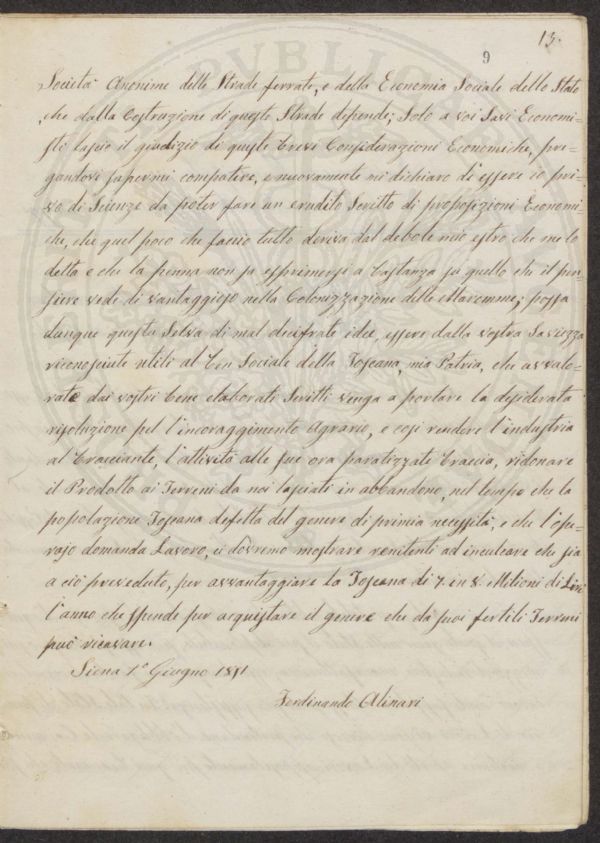 13.
9
Società Anonime delle Strade ferrate, e della Economia Sociale dello Stato
, che dalla Costruzione di queste Strade dipende; Solo a voi Savi Economi-
sti lascio il giudizio di queste brevi Considerazioni Economiche, pre-
gandovi sapermi compatire, e nuovamente mi dichiaro d'essere io pri-
vo di Scienze da poter fare un erudito Scritto di proposizioni Economi-
che, che quel poco che faccio tutto deriva dal debole mio estro che me lo
detta e che la penna non sa esprimersi a bastanza su quello che il pen-
siero vede di vantaggioso nella Colonizzazione delle Maremme; possa
dunque questa Selva di mal decifrate idee, essere dalla vostra Saviezza
riconosciute utili al ben Sociale della Toscana, mia Patria, che avvalo-
rate dai vostri bene elaborati Scritti venga a portare la desiderata
risoluzione pel l'incoraggimento Agrario, e così rendere l'industria
al bracciante, l'attività alle sue ora paralizzate braccia, ridonare
il Prodotto ai Terreni da noi lasciati in abbandono, nel tempo che la
popolazione Toscana difetta del genere di primia necessità, e che l'ope-
rajo domanda Lavoro, ci dovremo mostrare renitenti ad inculcare che sia
a ciò preveduto, per avvantaggiare la Toscana di 7. in 8. Milioni di Lire
l'anno che spende per acquistare il genere che da suoi fertili Terreni
può ricavare.
Siena 1° Giugno
Ferdinando Alinari